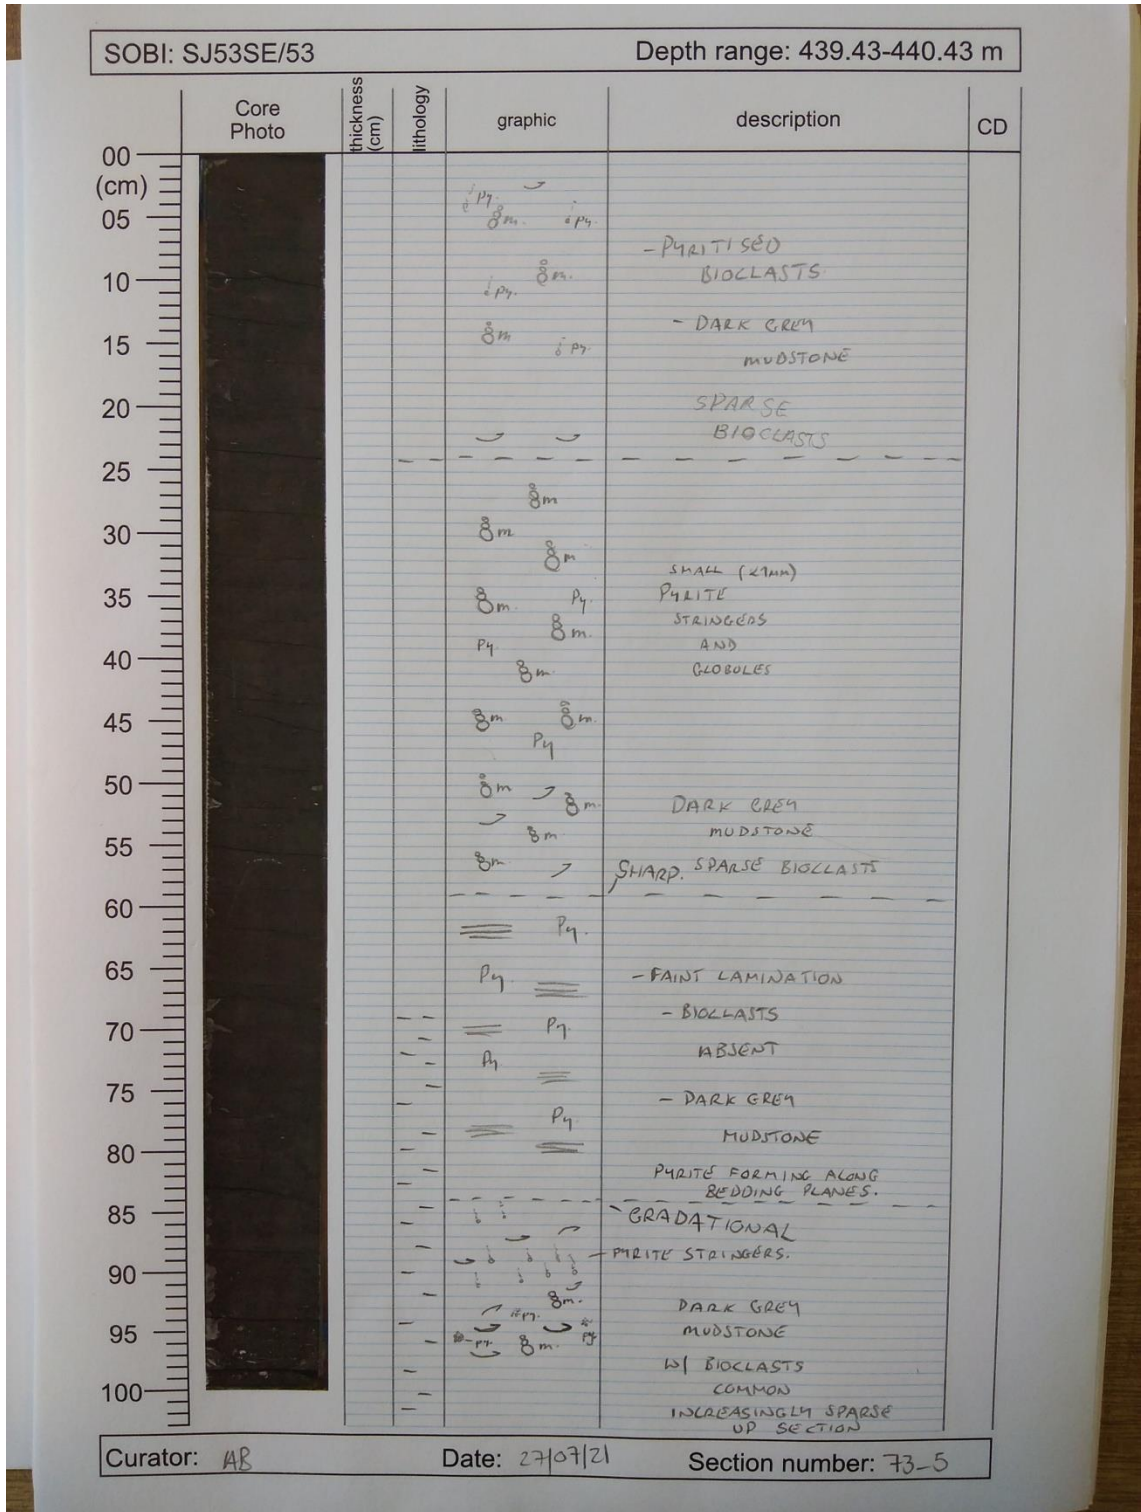 SOBI: SJ53SE/53 Depth range: 439.43-440.43 m
Core Photo thickness (cm) lithology graphic description CD
00
(cm)
05
10
15
20
25
30
35
40
45
50
55
60
65
70
75
80
85
90
95
100
Py.
m. Py.
m.
Py.
m
Py.
m
m
m
m. Py.
m.
Py
m.
m m.
Py
m
m.
m.
m
Py.
Py.
Py.
Py
Py.
m.
Py.
-Py. m. Py
- PYRITISED
BIOCLASTS
- DARK GREY
MUDSTONE
SPARSE
BIOCLASTS
SMALL (<1MM)
PYRITE
STRINGERS
AND
GLOBULES
DARK GREY
MUDSTONE
SHARP. SPARSE BIOCLASTS
- FAINT LAMINATION
- BIOCLASTS
ABSENT
- DARK GREY
MUDSTONE
PYRITE FORMING ALONG
BEDDING PLANES.
GRADATIONAL
PYRITE STRINGERS.
DARK GREY
MUDSTONE
W/ BIOCLASTS
COMMON
INCREASINGLY SPARSE
UP SECTION
Curator: AB Date: 27/07/21 Section number: 73-5